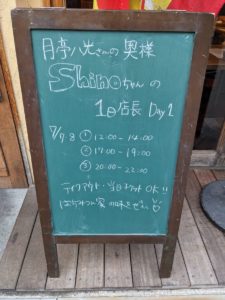 月亭八光さんの奥様
Shinoちゃんの
1日店長 Day1
7/9.8 ① 12:00-14:00
② 17:00-19:00
③ 20:00-22:00
テイクアウト・当日チケット OK!!
味をぜひ